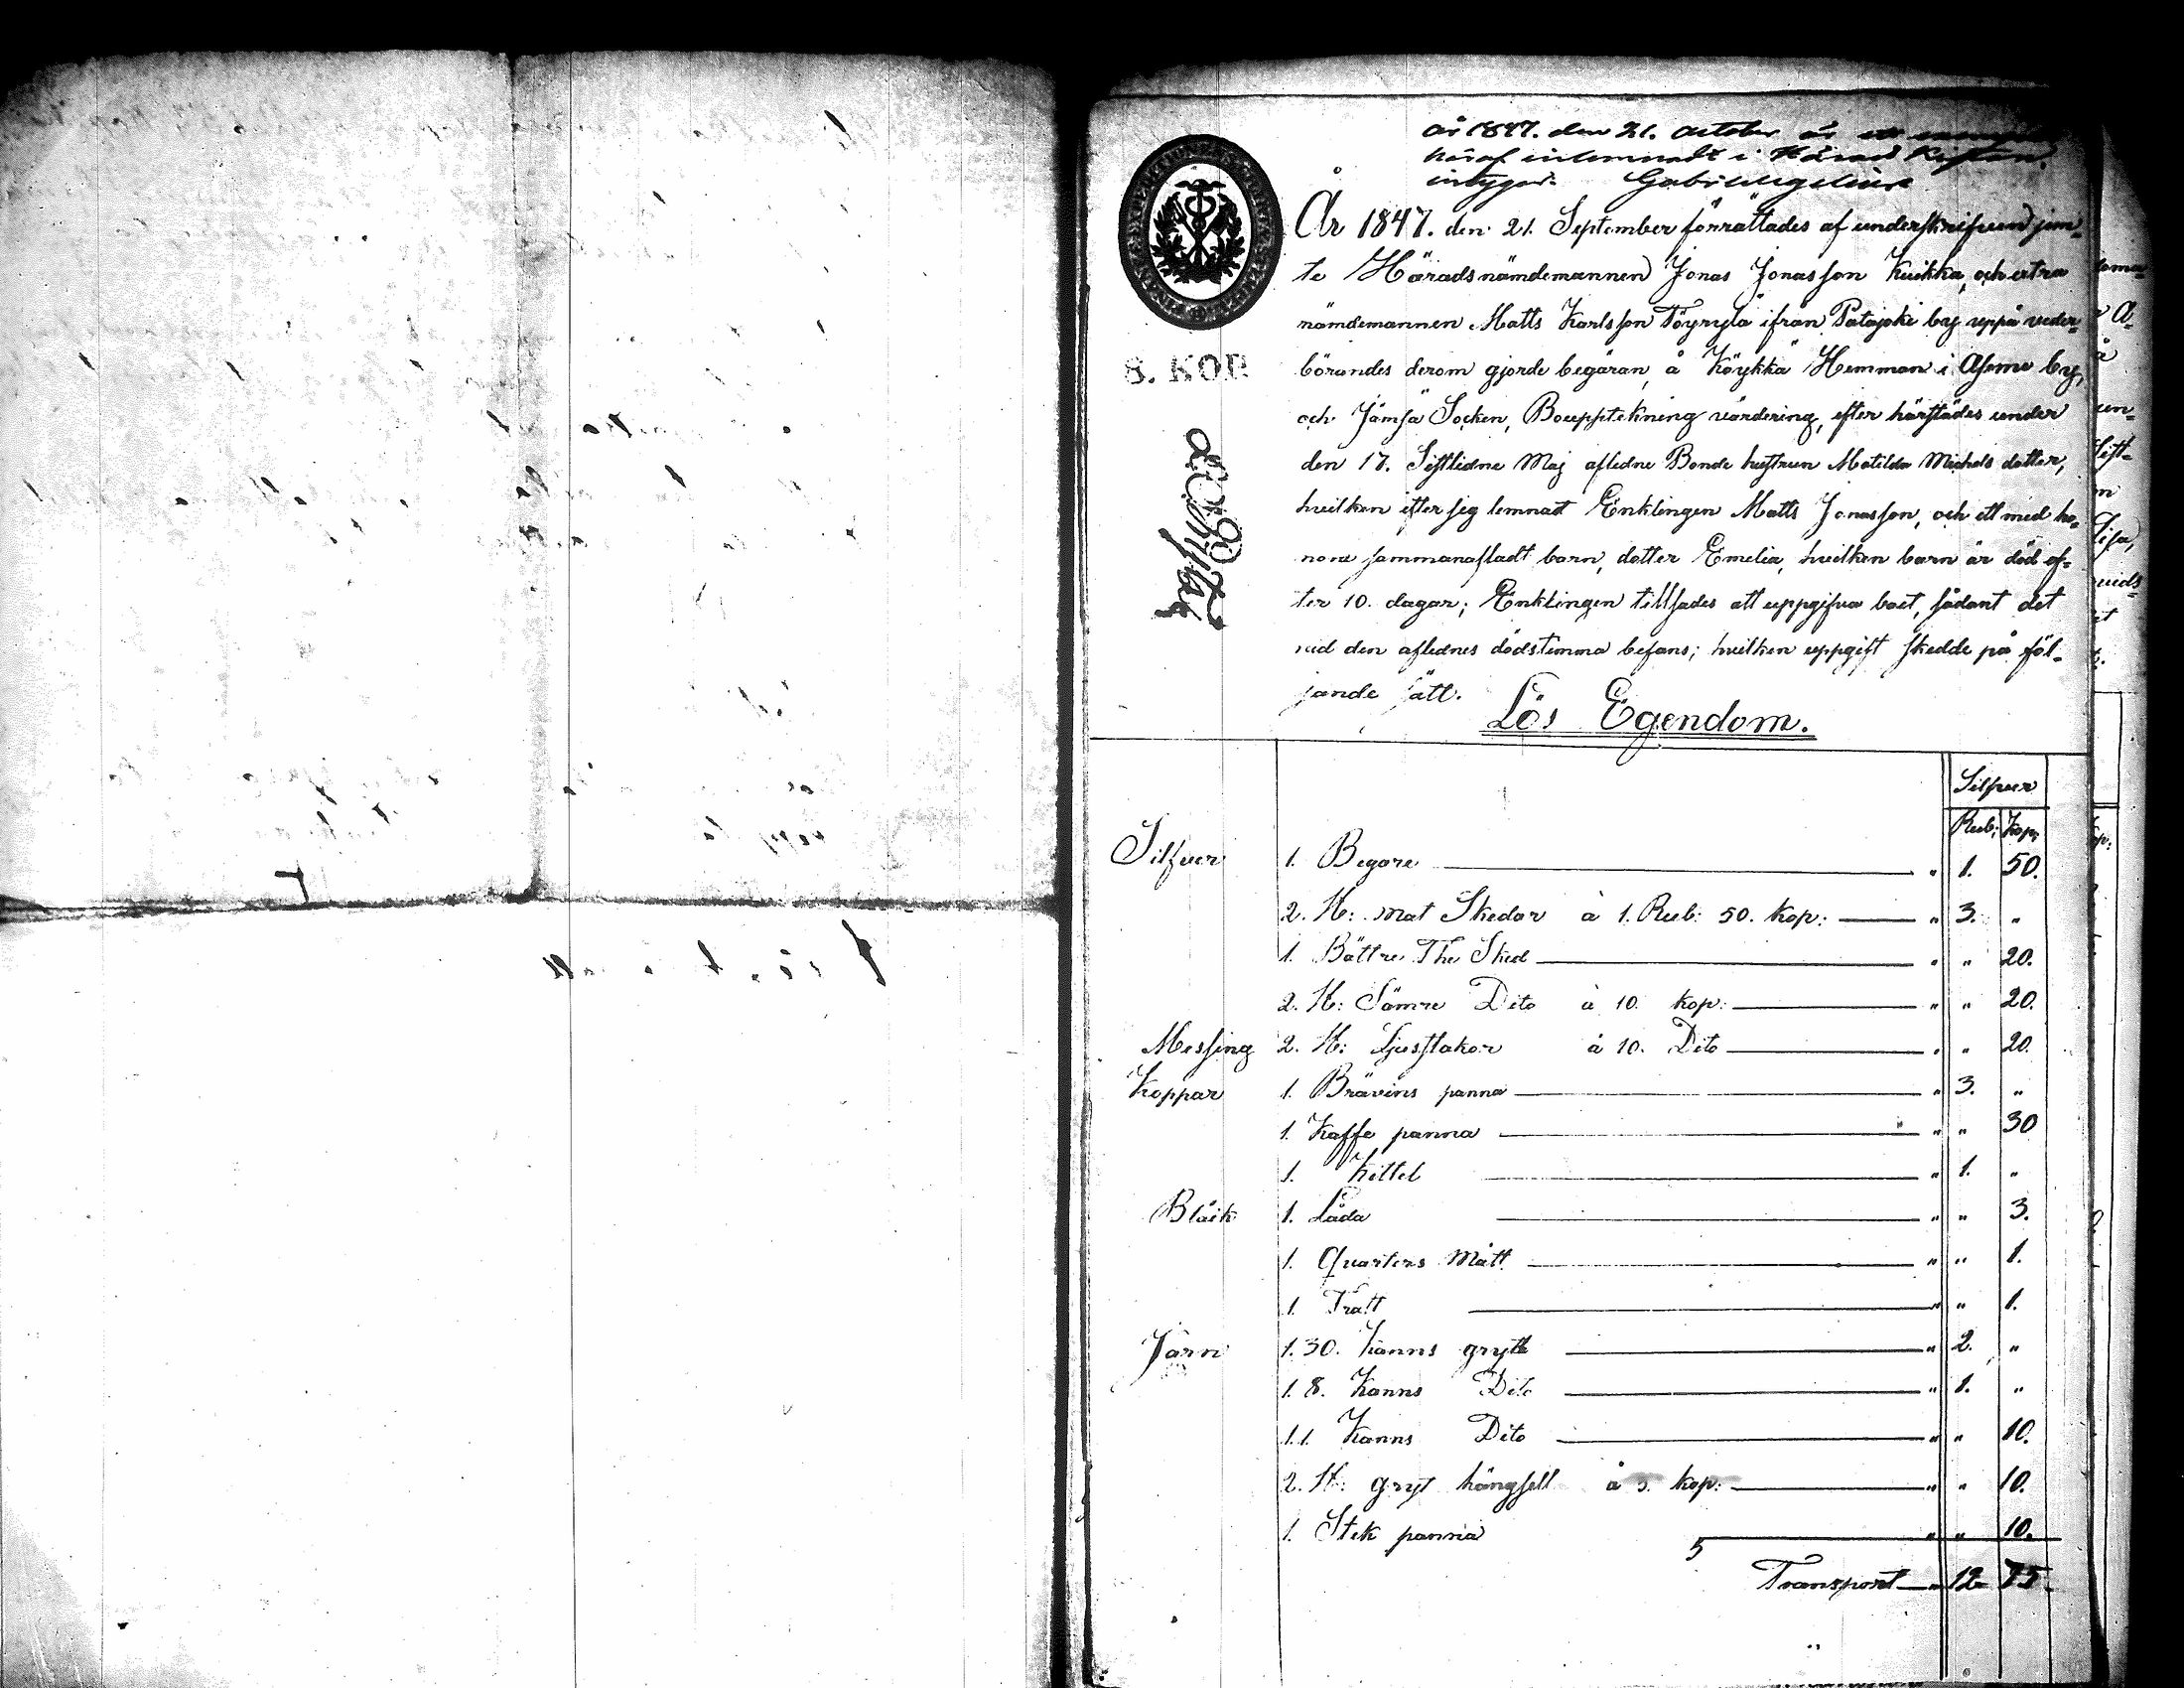 År 1847. den 21. October är ett exemplar
häraf inlemnadt i Härads Kistan,
intygar. Gabr:
År 1847. den 21. September förrättades af underskrifvin jem-
te Häradsnämdemannen Jonas Jonasson Kuikka, och extra
nämdemannen Matts Karlsson Töyrylä ifrån Patajoki by uppå veder-
börandes derom gjorde begäran, å Köykkä Hemman i Aseme by,
och Jämsä Socken, Bouppteckning värdering, efter härstädes under
den 17. Sistlidne Maj aflidne Bonde hustrun Matilda Michels dotter,
hvilken efter sig lemnat Enklingen Matts Jonasson, och ett med ho-
nom sammanafladt barn, dotter Emelia, hvilken barn är död ef-
ter 10. dagar; Enklingen tillsades att uppgifva boet, sådant det
vid den aflednes dödstimma befans; hvilken uppgift skedde på föl-
jande sätt.
8. KOP.
Lös Egendom.
Silfver
Rub: Kop:
Silfver 1. Begare " 1. 50.
2. St: mat Skedar à 1. Rub: 50. kop: " 3. "
1. Bättre The Sked " " 20.
2. St: Sämre Dito à 10. kop: " " 20.
Messing 2. St: Ljusstakar à 10. Dito " " 20.
Koppar 1. Brävins panna " 3. "
1. Kaffe panna " " 30
1. Kittel " 1. "
Bläck 1. Låda " " 3.
1. Quarters Mått " " 1.
1. Tratt " " 1.
Järn 1. 30. Kanns gryta " 2. "
1. 8. Kanns Dito " 1. "
1. 1. Kanns Dito " " 10.
2. St: gryt hängsell å 5. kop: " " 10.
1. Stek panna " " 10.
5
Transport " 12 75.